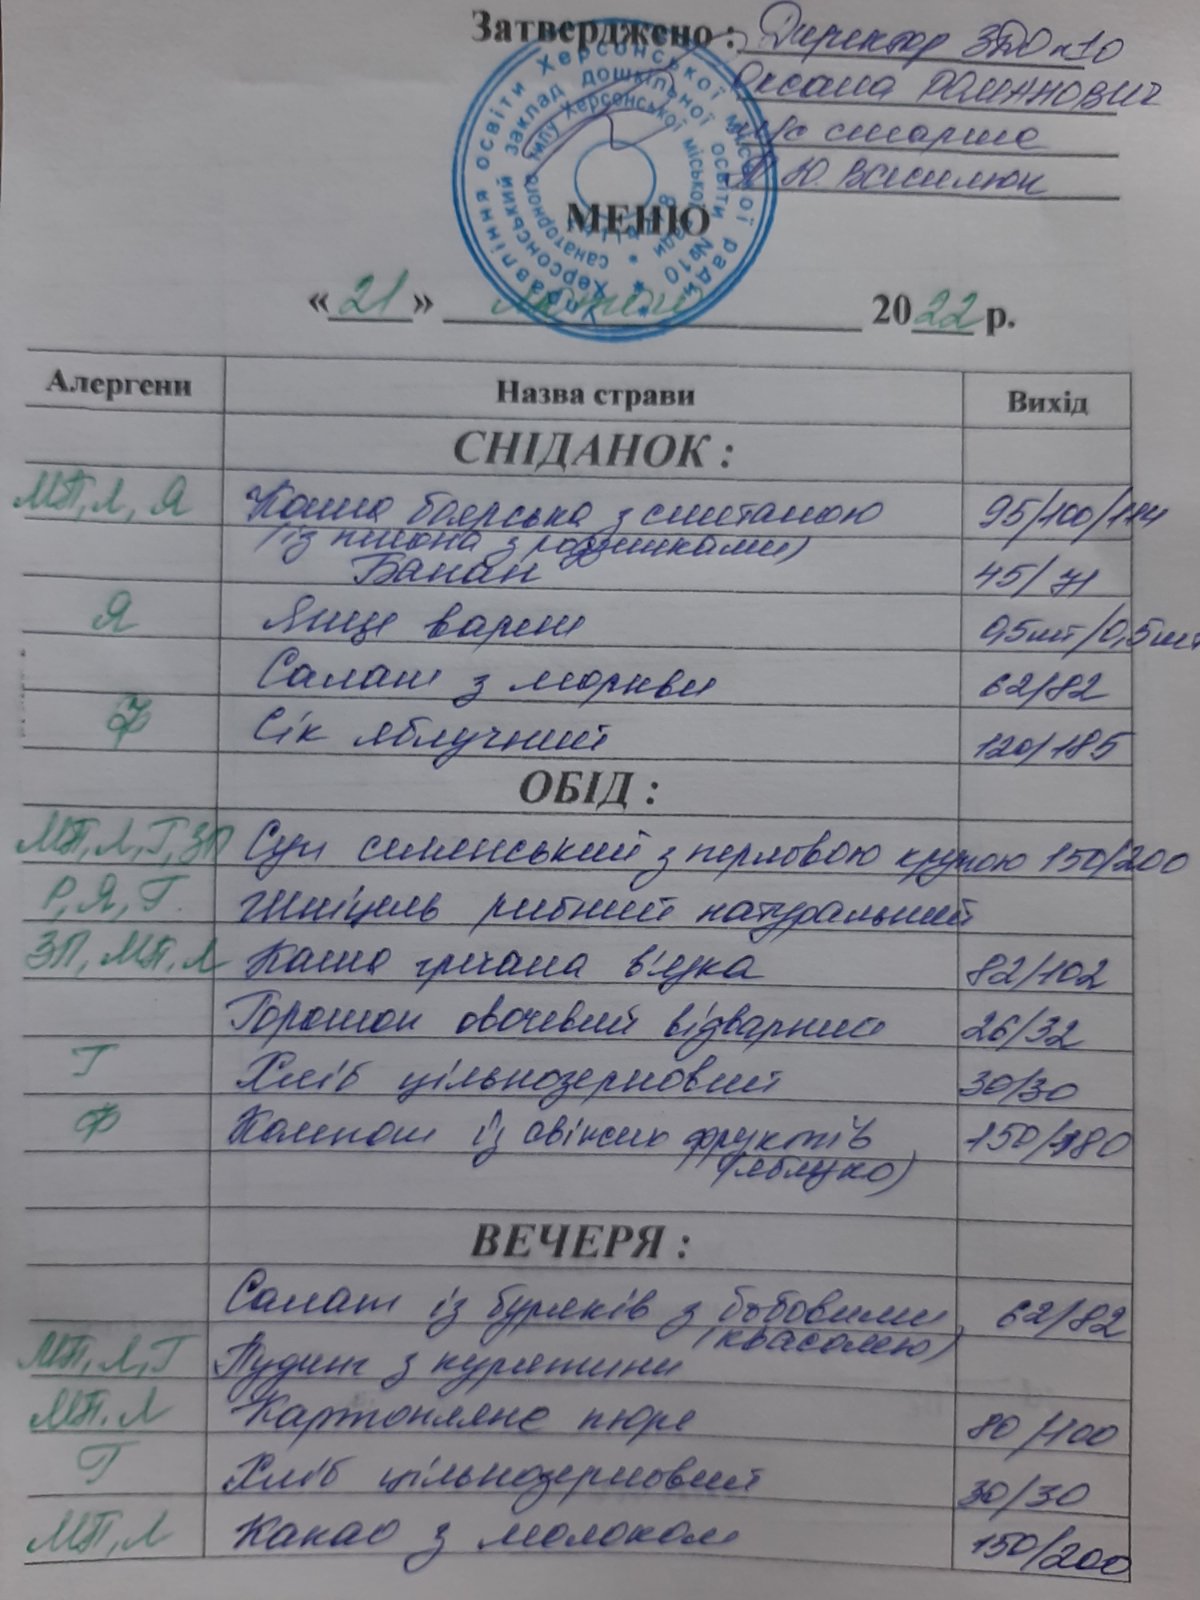 Затверджено : Директор ЗДО №10
Оксана РОМАНОВИЧ
м/с старша
Ю. Василюк
Управління освіти Херсонської міської ради
Херсонський заклад дошкільної освіти №10
санаторного типу Херсонської міської ради
МЕНЮ
«21» лютого 2022 р.
Алергени Назва страви Вихід
СНІДАНОК :
МП, Л, Я Каша боярська з сметаною 95/100/114
(із пшона з родзинками)
Банан 45/71
Я Яйце варене 0,5шт/0,5шт
Салат з моркви 62/82
Ф Сік яблучний 120/185
ОБІД :
МП, Л, Г, ЗП Суп селянський з перловою крупою 150/200
Р, Я, Г. Шніцель рибний натуральний
ЗП, МП, Л Каша гречана в'язка 82/102
Горошок овочевий відварний 26/32
Г Хліб цільнозерновий 30/30
Ф Компот із свіжих фруктів 150/180
(яблуко)
ВЕЧЕРЯ :
Салат із буряків з бобовими 62/82
(квасолею)
МП, Л, Г Пудинг з курятини
МП, Л Картопляне пюре 80/100
Г Хліб цільнозерновий 30/30
МП, Л Какао з молоком 150/200